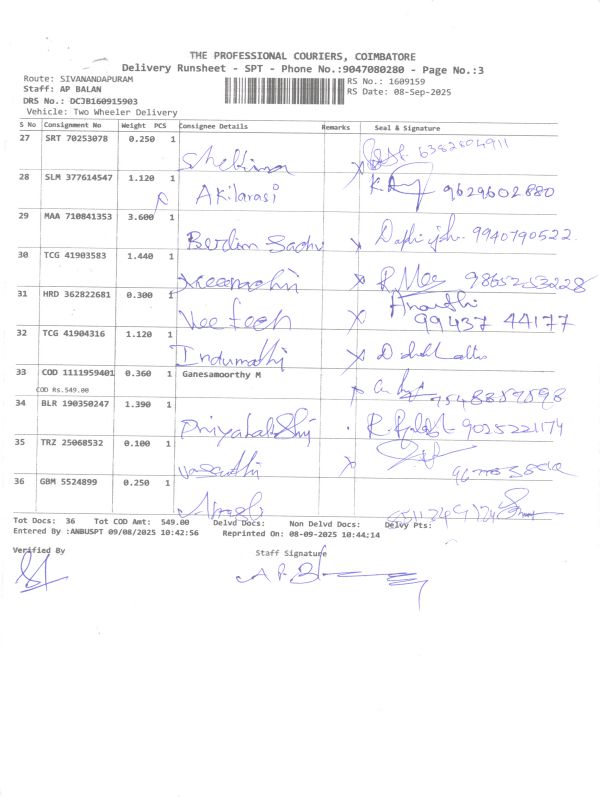 THE PROFESSIONAL COURIERS, COIMBATORE
Delivery Runsheet - SPT - Phone No.:9047080280 - Page No.:3
Route: SIVANANDAPURAM RS No.: 1609159
Staff: AP BALAN RS Date: 08-Sep-2025
DRS No.: DCJB160915903
Vehicle: Two Wheeler Delivery
S No Consignment No Weight PCS Consignee Details Remarks Seal & Signature
27 SRT 70253078 0.250 1 6382504911
28 SLM 377614547 1.120 1 Akilarasi 9629602880
29 MAA 710841353 3.600 1 9940790522
30 TCG 41903583 1.440 1 R. Mee 9865253228
31 HRD 362822681 0.300 1 99437 44177
32 TCG 41904316 1.120 1 Indumathi
33 COD 1111959401 0.360 1 Ganesamoorthy M
COD Rs.549.00
34 BLR 190350247 1.390 1 9025221174
35 TRZ 25068532 0.100 1 Vasanthi
36 GBM 5524899 0.250 1
Tot Docs: 36 Tot COD Amt: 549.00 Delvd Docs: Non Delvd Docs: Delvy Pts:
Entered By :ANBUSPT 09/08/2025 10:42:56 Reprinted On: 08-09-2025 10:44:14
Verified By Staff Signature